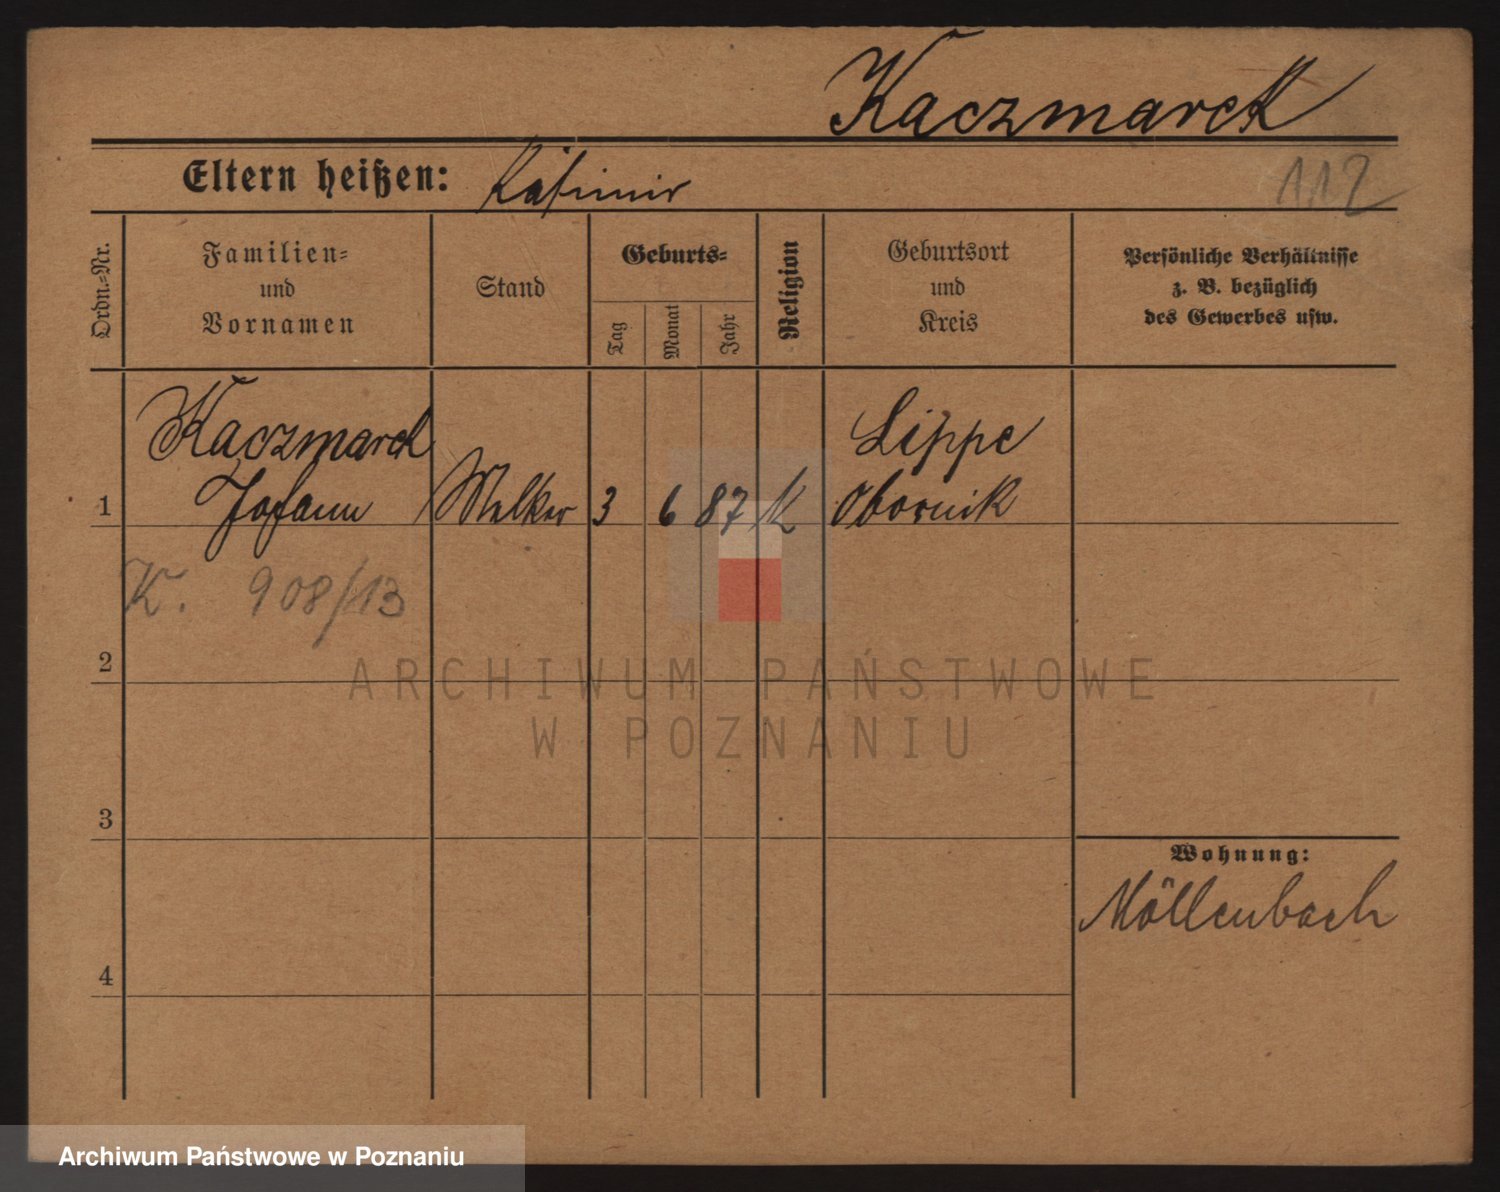 Kaczmarek
Eltern heißen: Kasimir
112
Ordn.-Nr.
Familien-
und
Vornamen
Stand
Geburts-
Tag
Monat
Jahr
Religion
Geburtsort
und
Kreis
Persönliche Verhältnisse
z. B. bezüglich
des Gewerbes usw.
Kaczmarek Lippe
1 Johann Melker 3 6 87 K Obornik
K. 908/13
2
ARCHIWUM PAŃSTWOWE
W POZNANIU
3
Wohnung:
Möllenbach
4
Archiwum Państwowe w Poznaniu